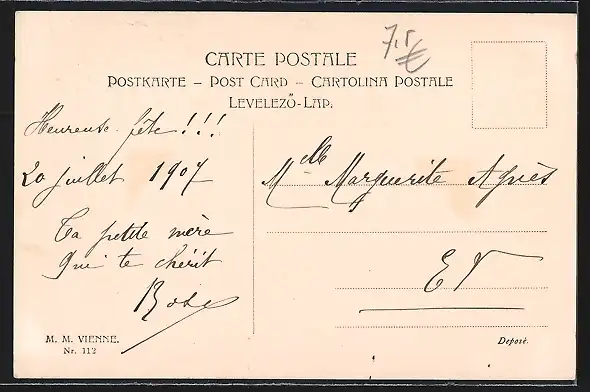 7.5 €
CARTE POSTALE
POSTKARTE – POST CARD – CARTOLINA POSTALE
LEVELEZŐ-LAP.
Heureuse fête !!!
20 juillet 1907
Ta petite mère
qui te chérit
Rose
M. M. VIENNE.
Nr. 112
Mlle Marguerite Agnès
E V
Deposé.